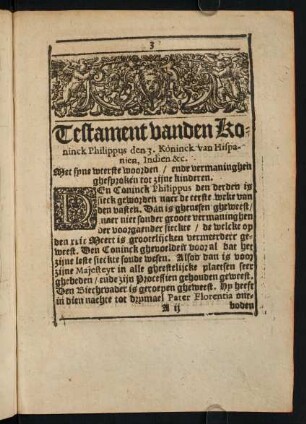 3
Testament vanden Ko-
ninck Philippus den 3. Koninck van Hispa-
nien, Indien &c.
Met syne weerste woorden / ende vermaninghen
ghesproken tot zijne kinderen.
DEn Coninck Philippus den derden is
sieck geworden naer de eerste weke van
den vasten. Dan is ghenesen ghweest/
naer niet sonder groote vermaninghen
der voorgaender sieckte / de welcke op
den xxix Meert is grootelijcken vermeerdert ge-
weest. Den Coninck ghevoeldeet vooral dat het
zijne leste sieckte soude wesen. Alsoo dan is voor
zijne Majesteyt in alle gheestelijcke plaetsen seer
ghebeden / ende zijn Processien gehouden geweest.
Den Biechtvader is geroepen gheweest. Hy heeft
in dien nachte tot drymael Pater Florentia
A ij
boden